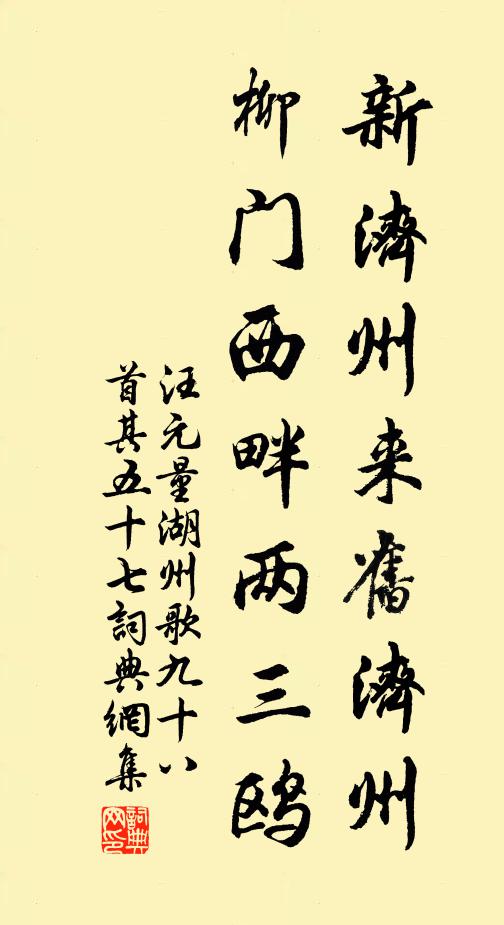 新濟州来舊濟州
柳门西畔两三鸥
汪元量湖州歌九十八
首其五十七詞典網集
詞典
网印